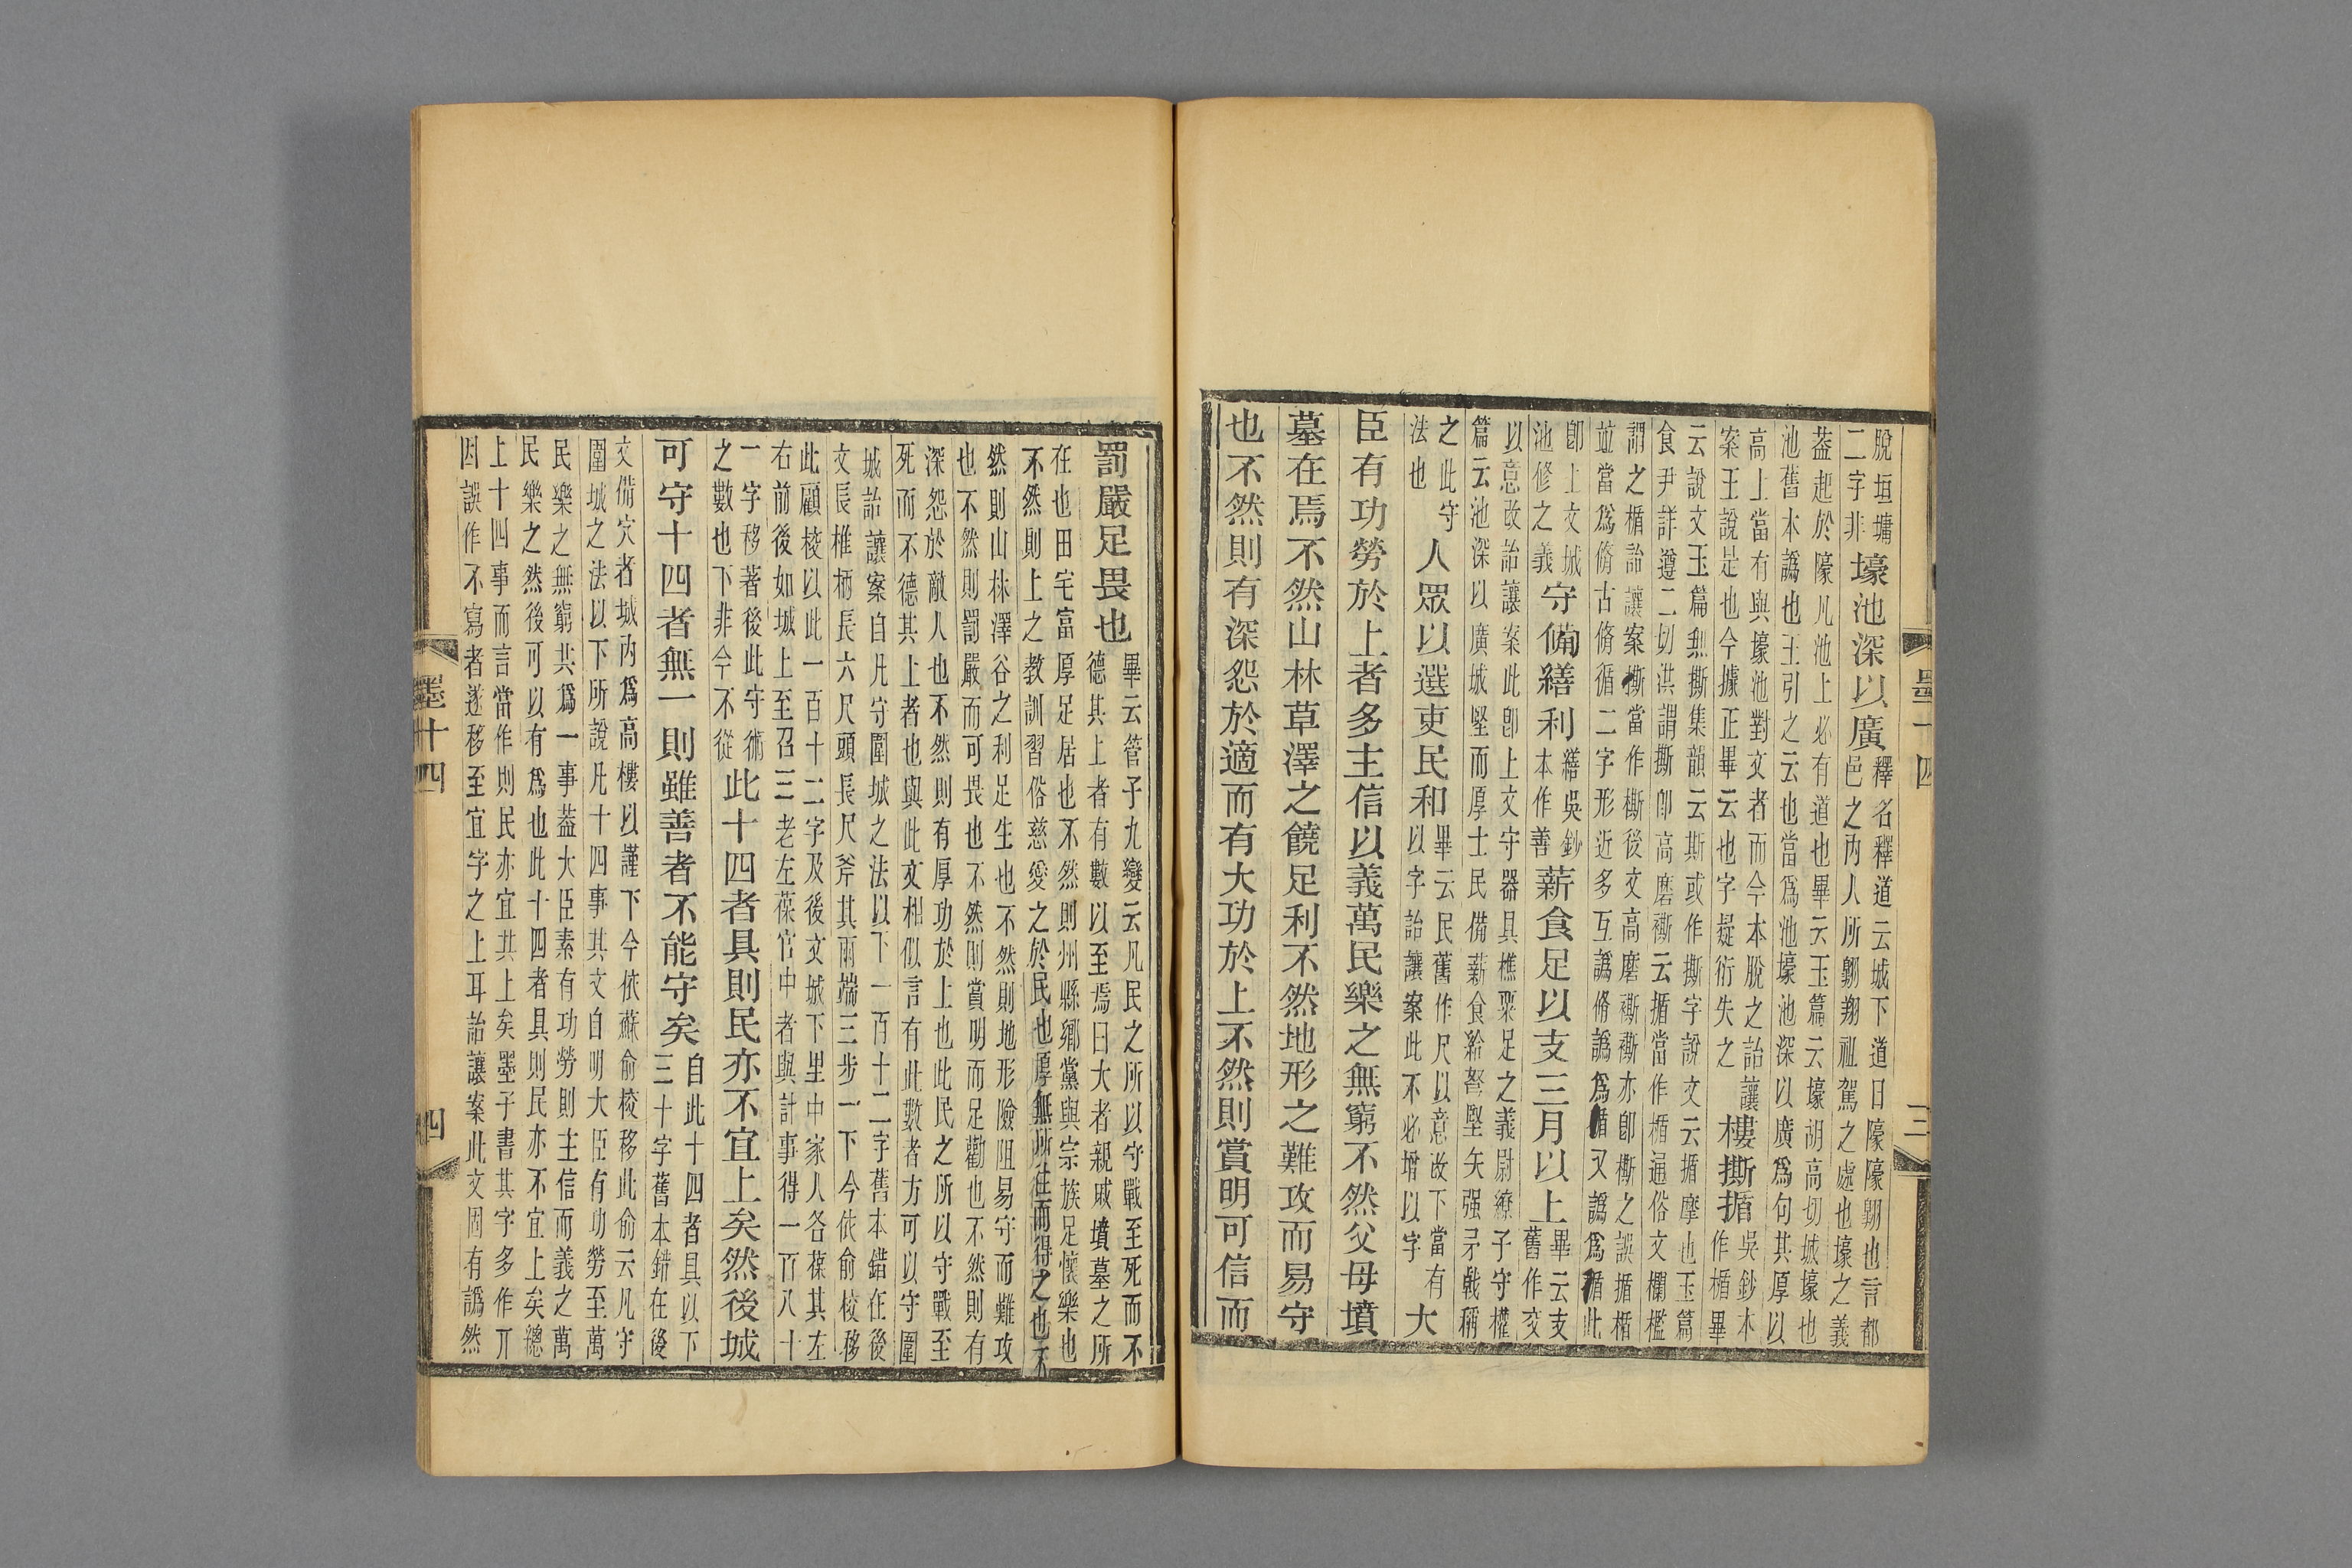 脫垣墉
二字非
壕池深以廣
釋名釋道云城下道曰壕壕翺也言都
邑之內人所翺翔祖駕之處也壕之義
葢起於壕凡池上必有道也畢云玉篇云壕胡高切城壕也
池舊本譌也王引之云也當爲池壕池深以廣爲句其厚以
高上當有與壕池對文者而今本脫之詒讓
案王說是也今據正畢云也字疑衍失之
樓撕揗
吳鈔本
作楯畢
云說文玉篇無撕集韻云斯或作撕字說文云揗摩也玉篇
食尹詳遵二切洪謂撕卽高磨㯕云揗當作楯通俗文欄檻
謂之楯詒讓案撕當作㯕後文高磨㯕㯕亦卽㯕之誤揗楯
竝當爲脩古脩循二字形近多互譌脩譌爲循又譌爲揗此
卽上文城
池修之義
守備繕利
繕吳鈔
本作善
薪食足以支三月以上
畢云支
舊作交
以意改詒讓案此卽上文守器具樵粟足之義尉繚子守權
篇云池深以廣城堅而厚士民備薪食給弩堅矢强矛戟稱
之此守
法也
人眾以選吏民和
畢云民舊作尺以意改下當有
以字詒讓案此不必增以字
大
臣有功勞於上者多主信以義萬民樂之無窮不然父母墳
墓在焉不然山林草澤之饒足利不然地形之難攻而易守
也不然則有深怨於適而有大功於上不然則賞明可信而
墨十四
三
罰嚴足畏也
畢云管子九變云凡民之所以守戰至死而不
德其上者有數以至焉曰大者親戚墳墓之所
在也田宅富厚足居也不然則州縣鄉黨與宗族足懷樂也
不然則上之教訓習俗慈愛之於民也厚無所往而得之也不
然則山林澤谷之利足生也不然則地形險阻易守而難攻
也不然則罰嚴而可畏也不然則賞明而足勸也不然則有
深怨於敵人也不然則有厚功於上也此民之所以守戰至
死而不德其上者也與此文相似言有此數者方可以守圍
城詒讓案自凡守圍城之法以下一百十二字舊本錯在後
文長椎柄長六尺頭長尺斧其兩端三步一下今依俞校移
此顧校以此一百十二字及後文城下里中家人各葆其左
右前後如城上至召三老左葆官中者與計事得一百八十
一字移著後此守術
之數也下非今不從
此十四者具則民亦不宜上矣然後城
可守十四者無一則雖善者不能守矣
自此十四者具以下
三十字舊本錯在後
文備穴者城內爲高樓以謹下今依蘇俞校移此俞云凡守
圍城之法以下所說凡十四事其文自明大臣有功勞至萬
民樂之無窮共爲一事葢大臣素有功勞則主信而義之萬
民樂之然後可以有爲也此十四者具則民亦不宜上矣總
上十四事而言當作則民亦宜其上矣墨子書其字多作丌
因誤作不寫者遂移至宜字之上耳詒讓案此文固有譌然
墨十四
四